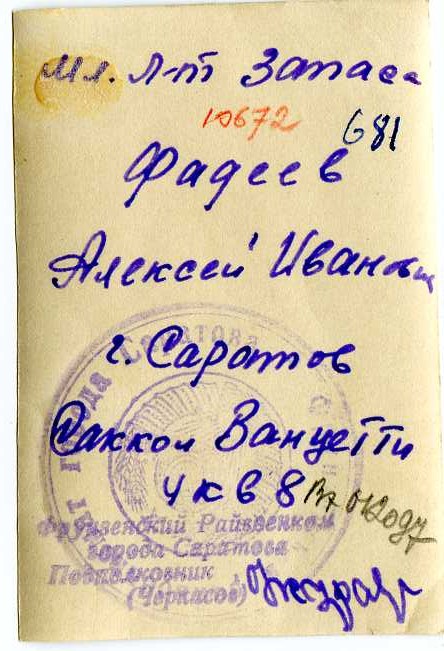 Мл. Л-т Запаса
10672 681
Фадеев
Алексей Иванович
г. Саратов
Саккои Ванцетти
4 кв 8
Фрунзенский Райвоенком
города Саратова
Подполковник
(Черкасов)